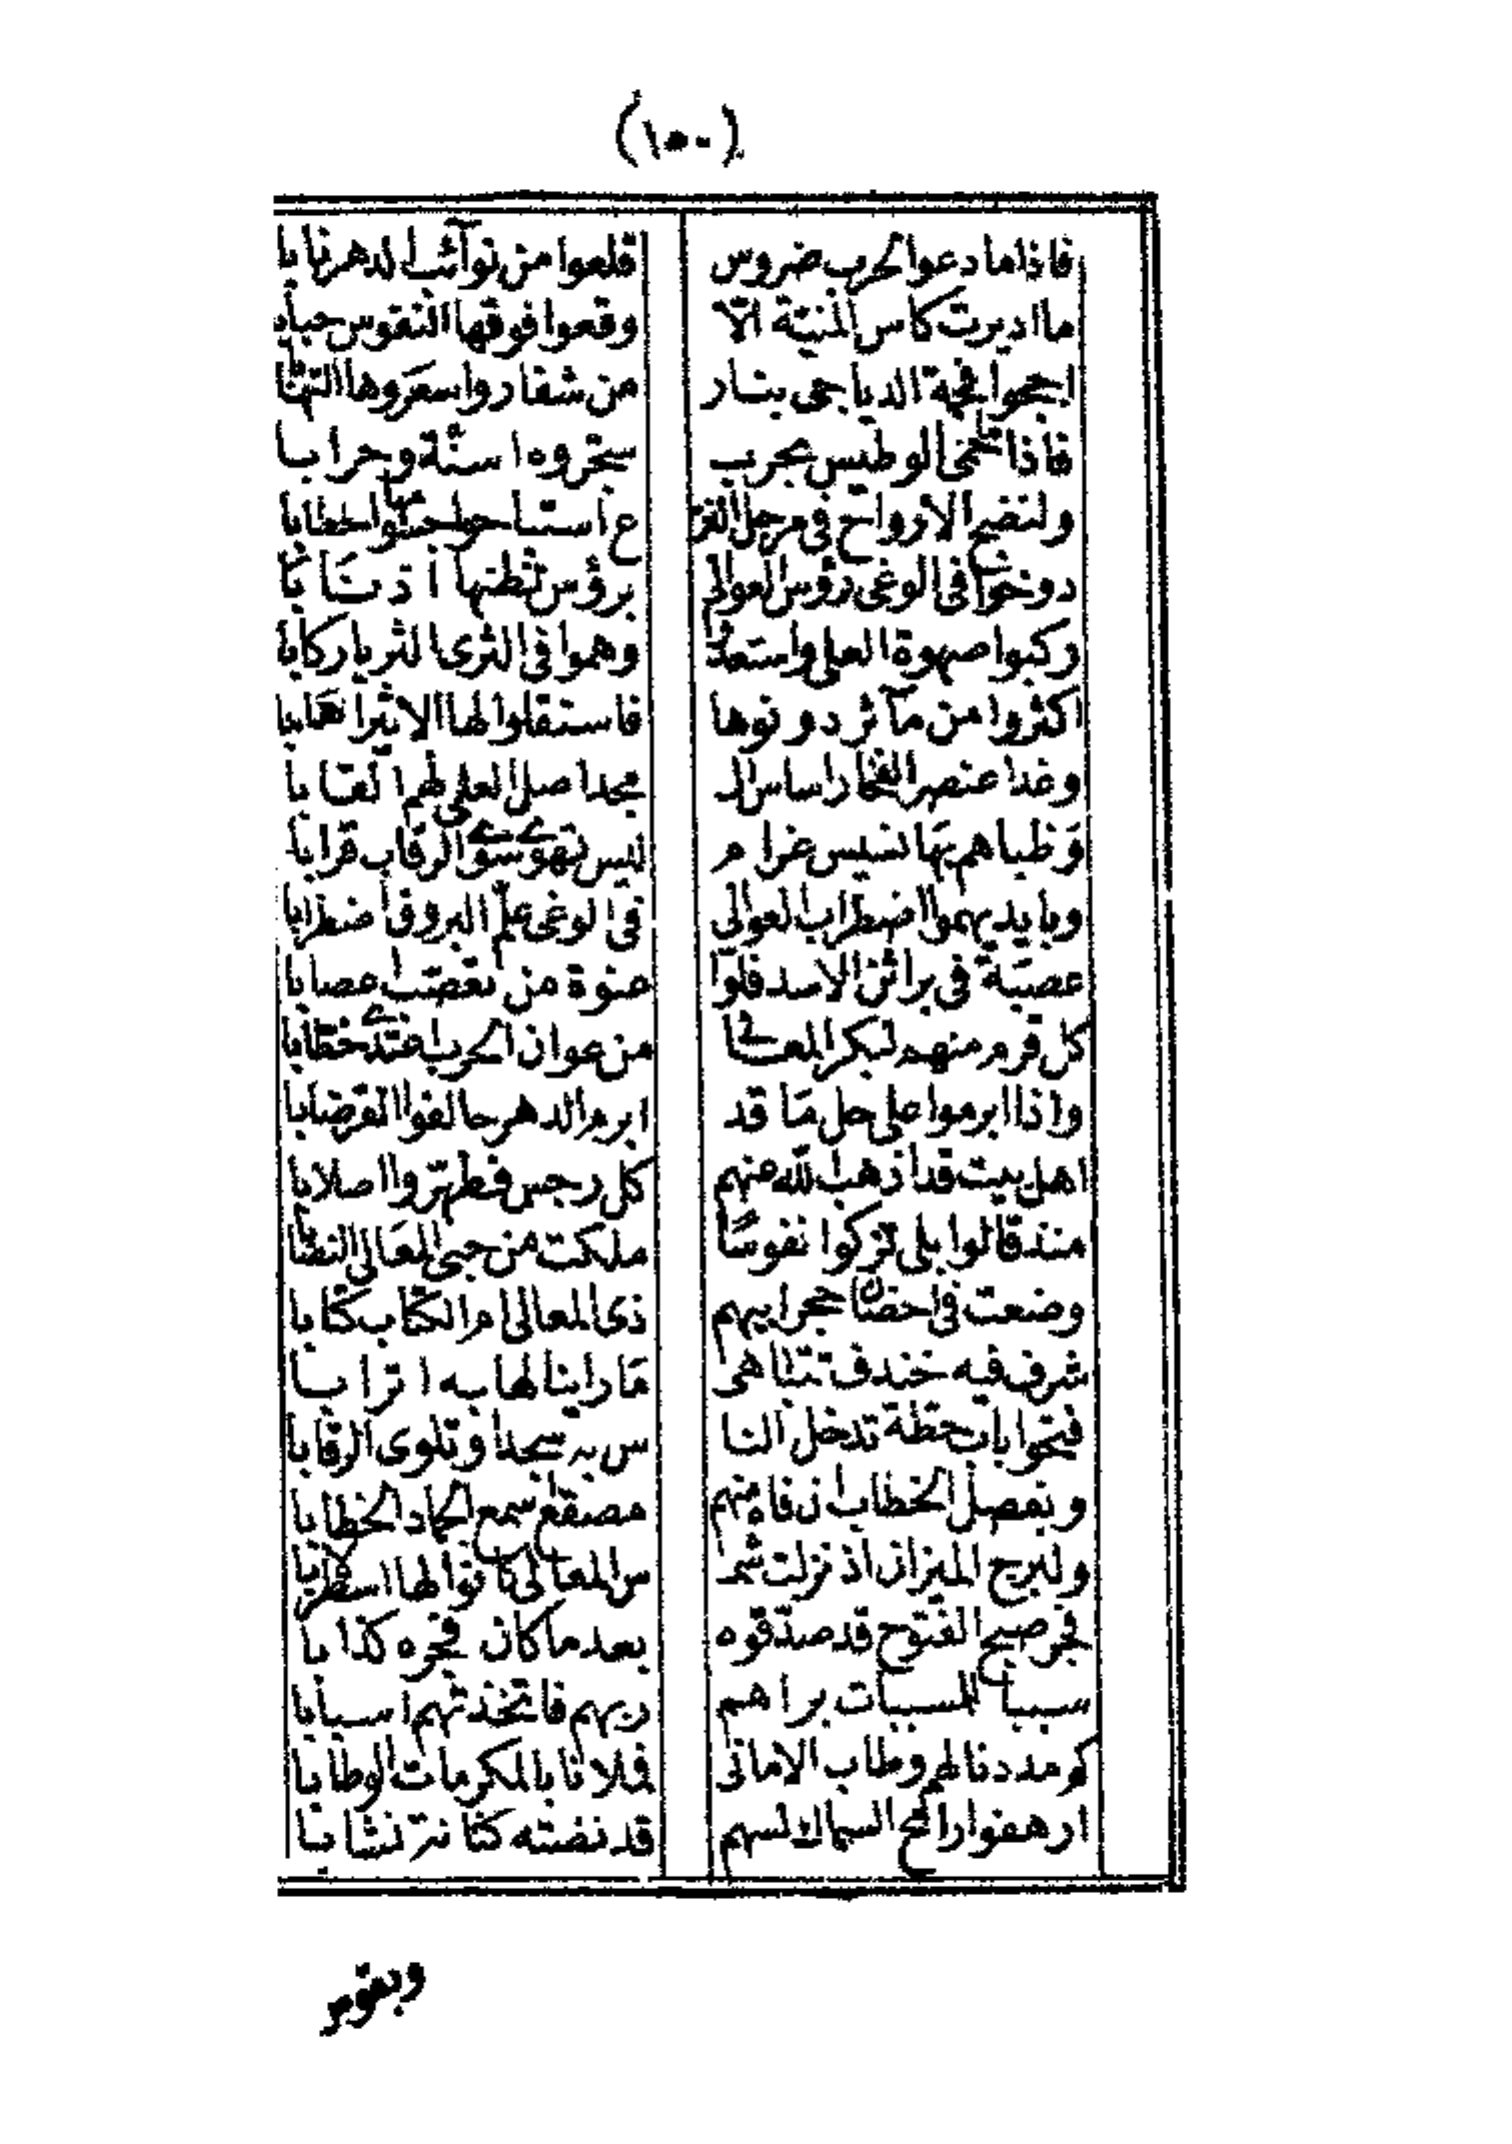 (١٥٠)
فاذا ما دعوا لحرب ضروس قلعوا من نوآئب الدهر نابا
ما اديرت كاس المنيّة الّا وقعوا فوقها النفوس حبابا
اججوا فحمة الدياجى بنار من شفار واسعروها التهابا
فاذا الوطيس بحرب سجّروه اسنّة وحرابا
ولنضج الارواح فى مرجل النقع استباحوا اجسامها احطابا
دوّخوا فى الوغى رؤس العوالى برؤس اذنابا
ركبوا صهوة العلى واستعدّوا وهموا فى الثرى الثريا ركابا
اكثروا من مآثر دونوها فاستقلوا لها الاثير
وغدا عنصر الفخار اساس الـ مجد اصل العلى لهم القابا
وَظباهم بَها نسيس غرام ليس تهوے سوے الرقاب قرابا
وبايديهموا اضطراب العوالى فى الوغى علّم البروق اضطرابا
عصبَة فى براثن الاسد فلّوا عنوة من تعصّب عصابا
كل قرم منهم لبكر المعالى من عوان الحرب اغتدے خطابا
واذا ابرموا على حل مَا قد ابرم الدهر حالفوا القرضابا
اهل بيت قد اذهب الله عنهم كل رجس فطهّروا اصلابا
منذ قالوا بلى تزكوا نفوسًا ملكت من حبى المعَالى النصابا
وضعت فى احضان حجر ابيهم ذى المعالى ام الكتاب كتابا
شرف فيه خندف تتباهى مَا راينا لها به اترابا
فتحوا باب حطة تدخل النا س به سجدا وتلوى الرقابا
وبفصل الخطاب ان فاه منهم مصقع اسمع الجماد الخطابا
ولبرج الميزان اذ نزلت شمـ س المعالى كانوا لها اسطرلابا
فجر صبح الفتوح قد صدّقوه بعد ما كان فجره كذابا
سببا للمسببات براهم ربهم فاتخذتهم اسبابا
كم مددنا لهم وطاب الامانى فملانا بالمكرمات الوطابا
ارهفوا رامح السماك لسهم قد نضته كنانة نشابا
وبقوم